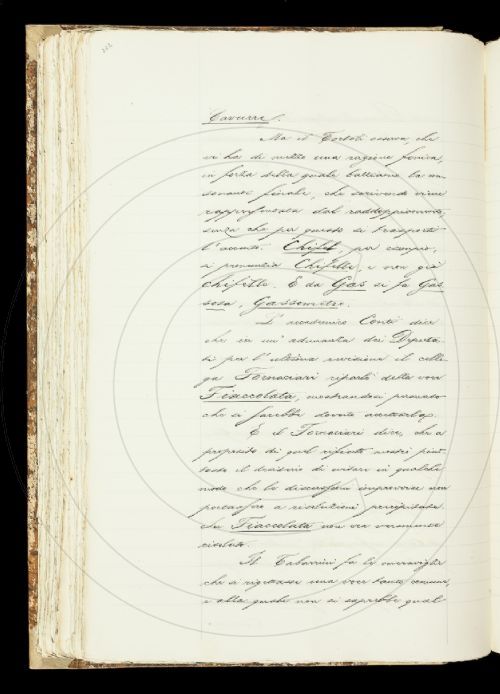 Cavurre.
Ma il Tortoli osserva, che
vi ha di mezzo una ragione fonica,
in forza della quale battiamo la con
sonante finale, che scrivendo viene
rappresentata dal raddoppiamento,
senza che per questo si trasporti
l'accento. Chifel per esempio,
si pronunzia Chifelle, e non già
Chifelle. E da Gas si fa Gas
sosa, Gassometro.
L'accademico Conti dice
che in un'adunanza dei Deputa
ti per l'ultima revisione il colle
ga Fornaciari riportò della voce
Fiaccolata, mostrandosi persuaso
che si farebbe dovuta accettarla.
E il Fornaciari dice, che a
proposito di quel rifiuto mostrò piut
tosto il desiderio di evitare in qualche
modo che le discussioni improvvise non
portassero a risoluzioni precipitate.
Su Fiaccolata non era veramente
risoluto.
Il Tabarrini fa le meraviglie
che si rigettasse una voce tanto comune,
e alla quale non si saprebbe qual